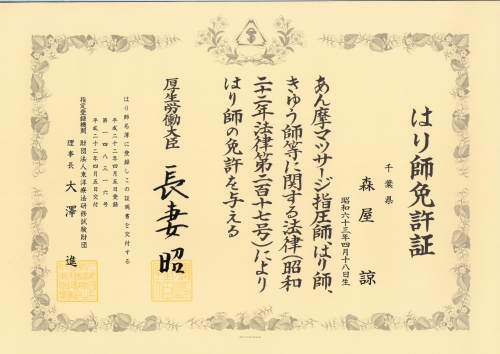 はり師免許証
千葉県
森屋 諒
昭和六十三年四月十八日生
あん摩マツサージ指圧師、はり師、
きゆう師等に関する法律(昭和
二十二年法律第二百十七号)により
はり師の免許を与える
厚生労働大臣 長妻昭
はり師名簿に登録しこの証明書を交付する
平成二十二年四月五日登録
第一四八三一六号
平成二十二年四月五日交付
指定登録機関 財団法人東洋療法研修試験財団
理事長 大澤 進